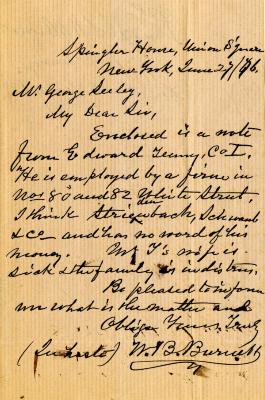 Spingler House, Union Square
New York, June 27/66.
Mr. George Seeley,
My Dear Sir,
Enclosed is a note
from Edward Tenny, Co I.
He is employed by a firm in
Nos 80 and 82 White Street,
I think Schwab
& co and has no word of his
money. Mr T's wife is
sick & the family is in distress.
Be pleased to inform
me what is the matter and
Oblige Yours Truly
(In haste) W. B. Burnett